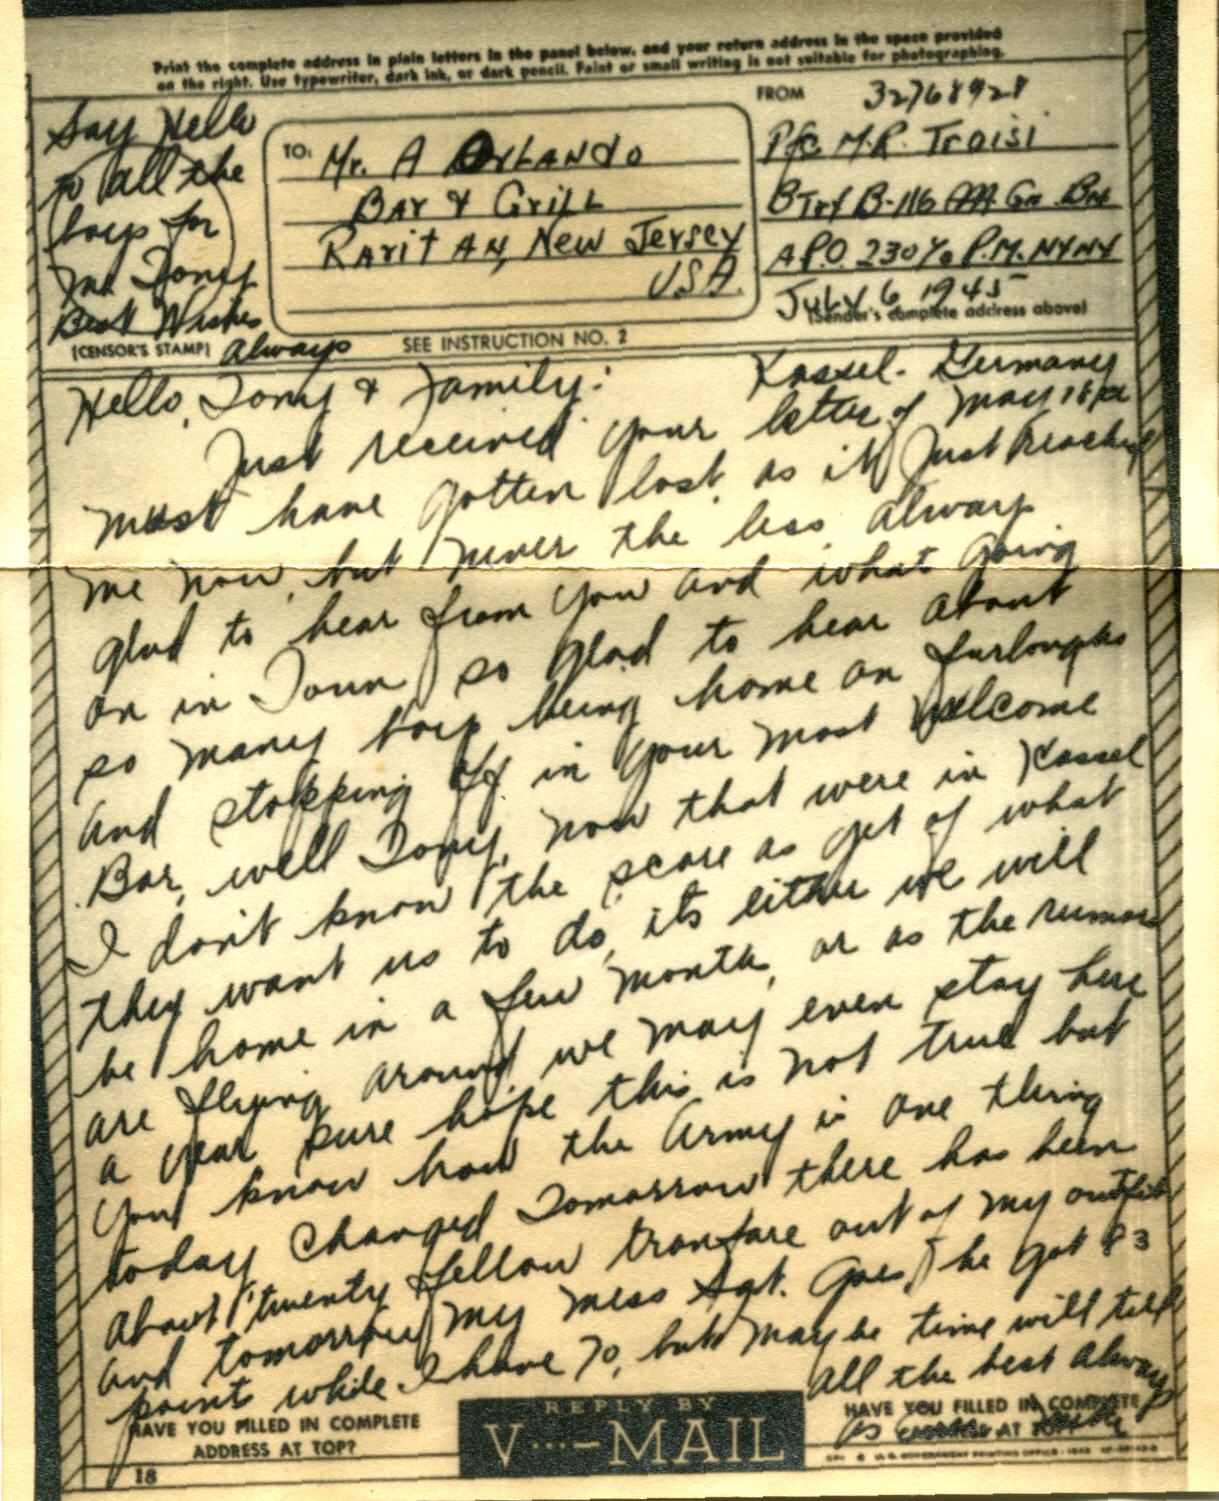 Print the complete address in plain letters in the panel below, and your return address in the space provided
on the right. Use typewriter, dark ink, or dark pencil. Faint or small writing is not suitable for photographing.
Say Hello
to all the
boys for
me Tony
Best Wishes
Always
[CENSOR'S STAMP]
SEE INSTRUCTION NO. 2
TO:
Mr. A Orlando
Bar & Grill
Raritan, New Jersey
USA.
FROM
32768928
Pfc. M.R. Troisi
Btry B-116 AAA Gn. Bn
A.P.O. 230 % P.M. NYNY
July 6 1945
(Sender's complete address above)
Kassel. Germany
Hello, Tony & Family:
Just received your letter of May 18
must have gotten lost, as it just reached
me now, but never the less always
glad to hear from you and what going
on in Town, so glad to hear about
so many boys being home on furloughs
and stopping off in your most Welcome
Bar, well Tony, now that were in Kassel
I don't know the score as yet of what
they want us to do, its either we will
be home in a few month, or as the rumors
are flying around we may even stay here
a year sure hope this is not true but
you know how the Army is one thing
today changed Tomorrow there has been
about twenty fellow transfare out of my outfit
and tomorrow my mess Sgt. Goes, he got 83
points while I have 70, but maybe time will tell
All the best Always
As
HAVE YOU FILLED IN COMPLETE
ADDRESS AT TOP?
REPLY BY
V···—MAIL
HAVE YOU FILLED IN COMPLETE
ADDRESS AT TOP?
18